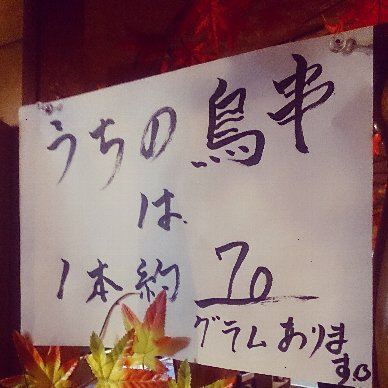 うちの鳥串
は
1本約70
グラムあります。